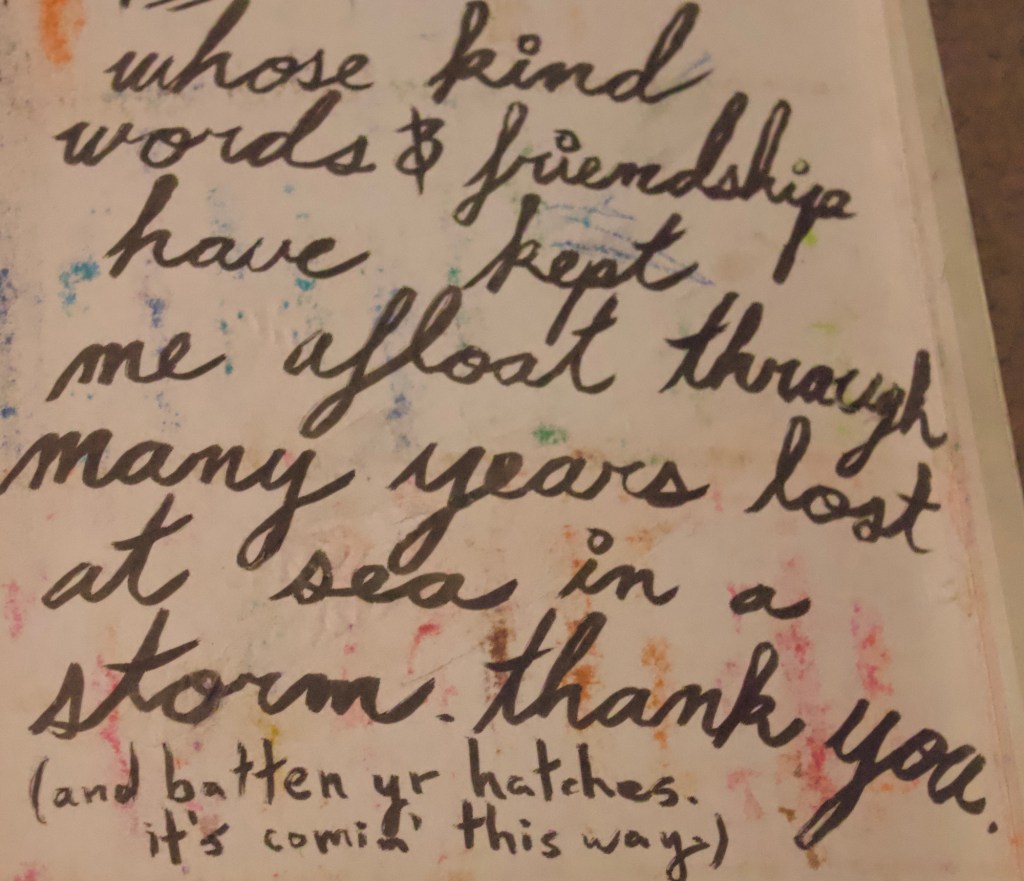 whose kind
words & friendship
have kept
me afloat through
many years lost
at sea in a
storm. thank you.
(and batten yr hatches.
it's comin' this way.)